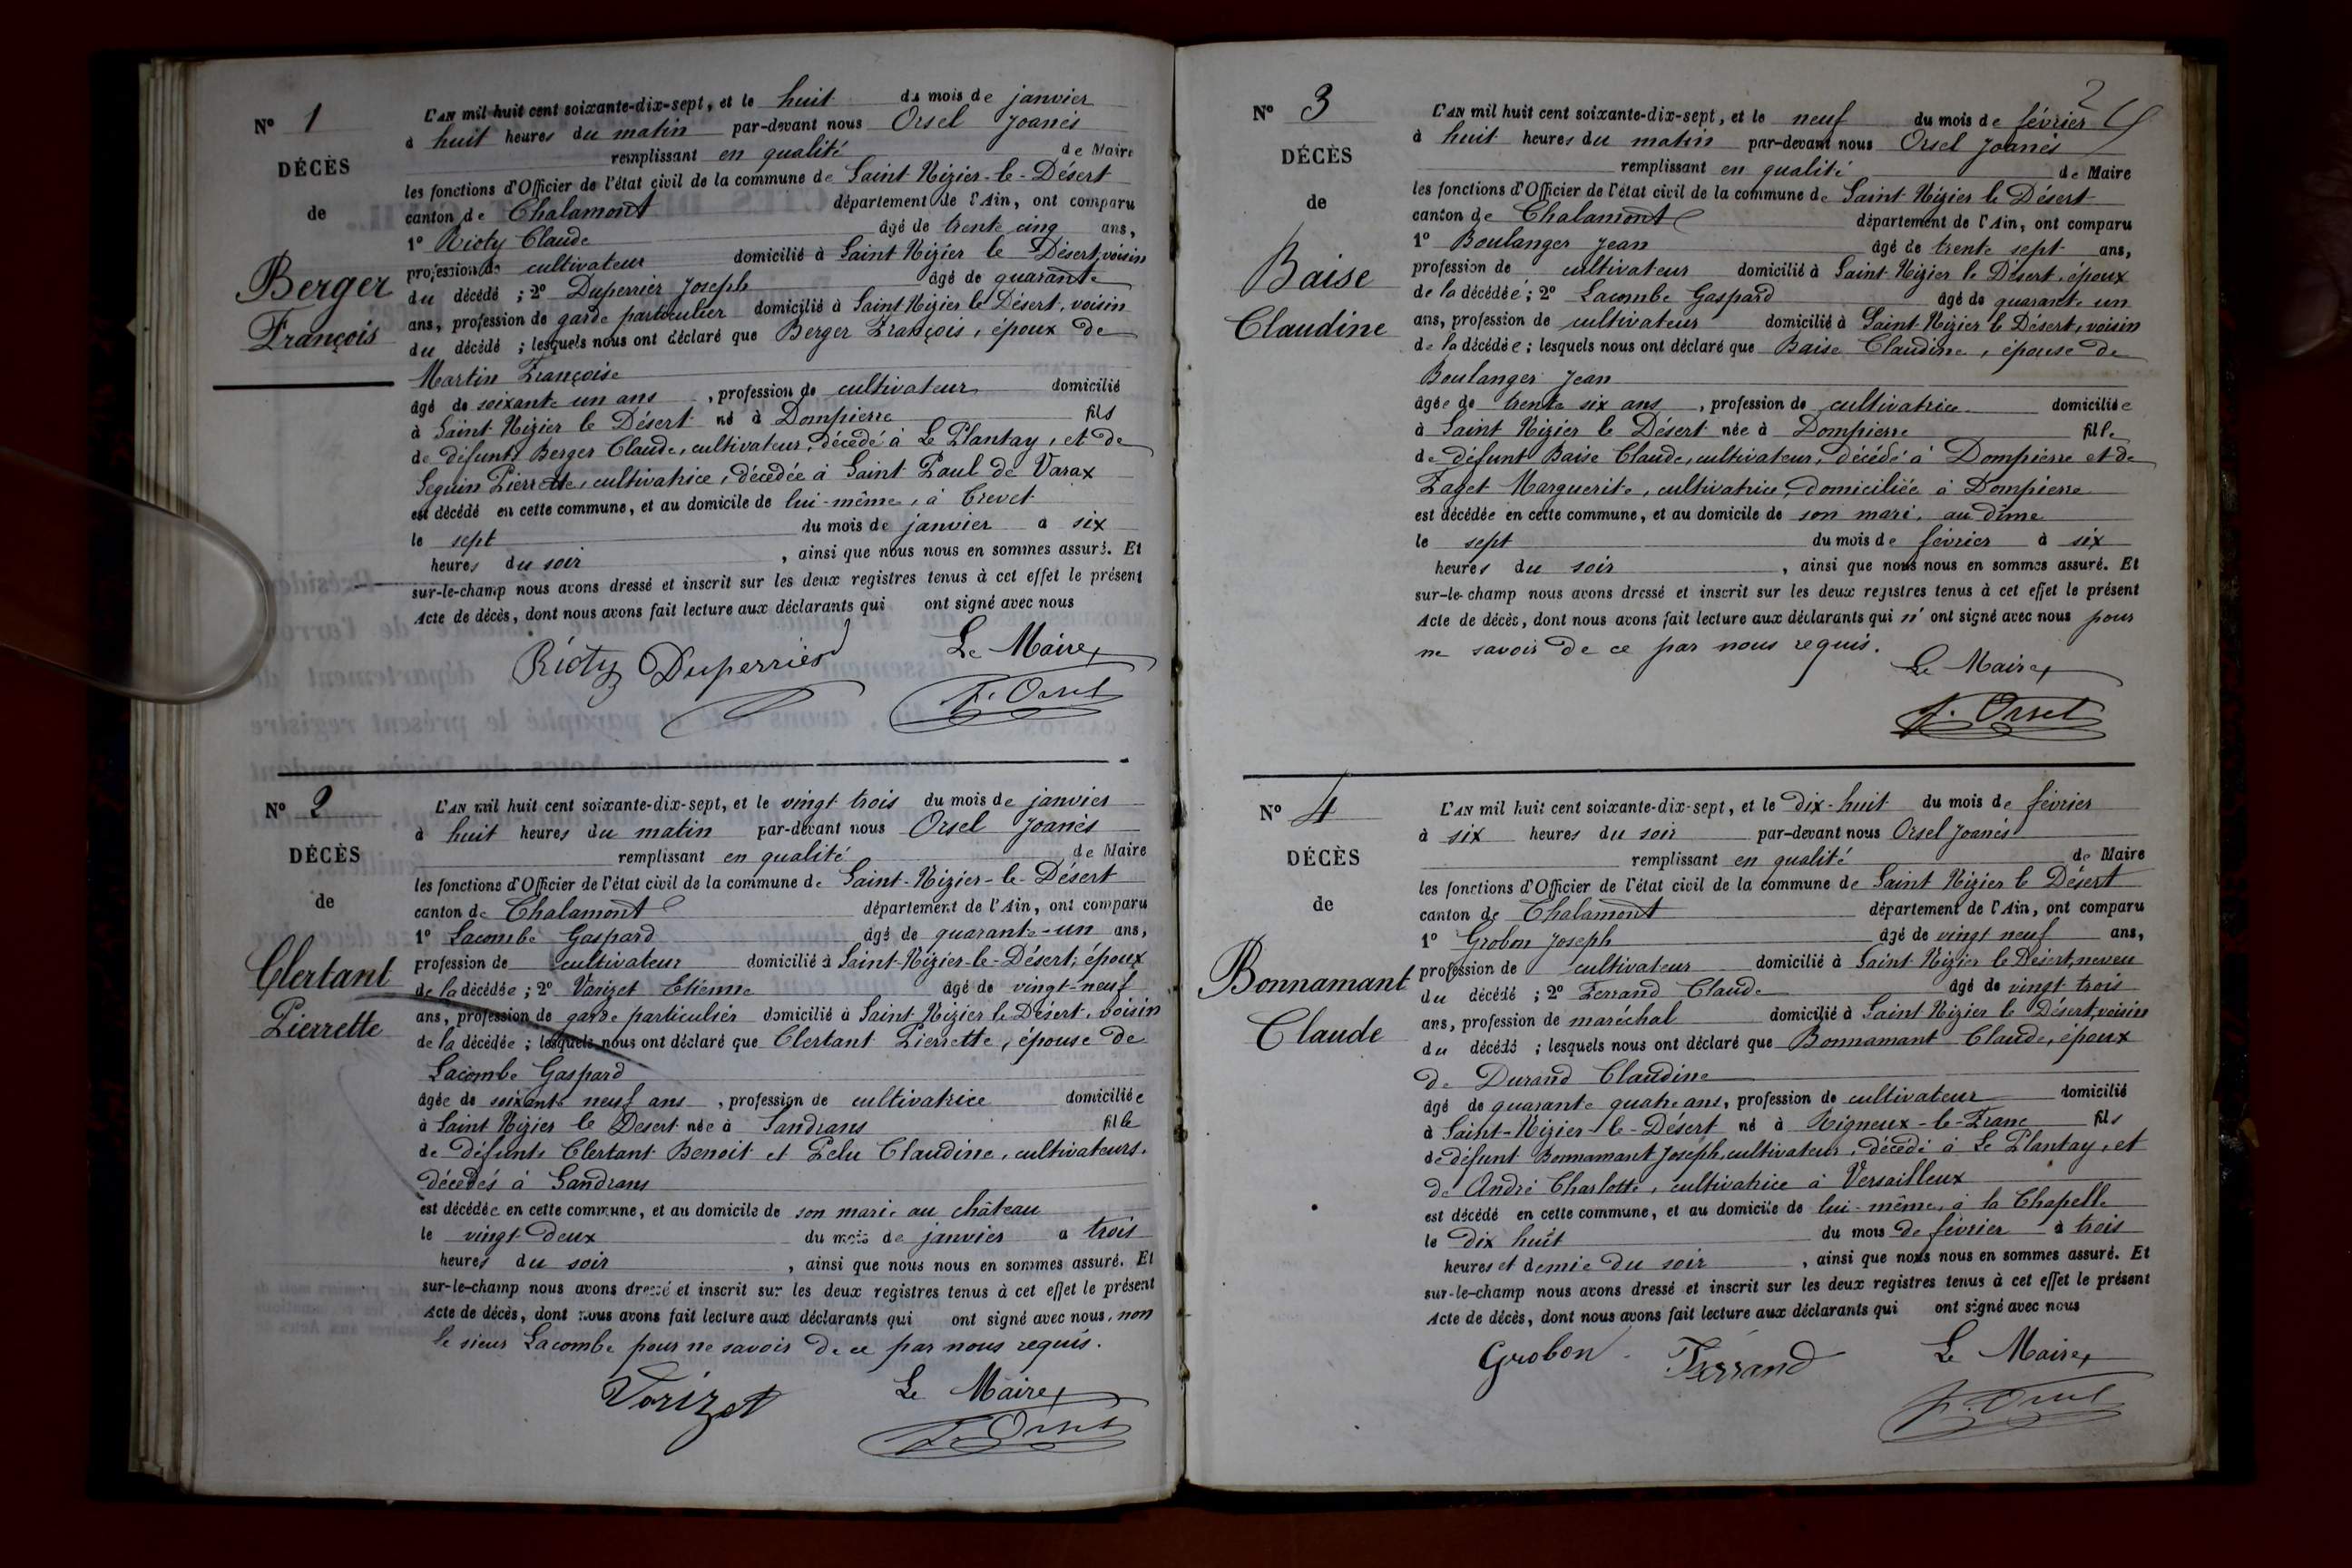 N° 1
DÉCÈS
de
Berger
François
L'AN mil huit cent soixante-dix-sept, et le huit du mois de janvier
à huit heures du matin par-devant nous Orsel Joanès
remplissant en qualité de Maire
les fonctions d'Officier de l'état civil de la commune de Saint Nizier-le-Désert
canton de Chalamont département de l'Ain, ont comparu
1° Rioty Claude âgé de trente cinq ans,
profession de cultivateur domicilié à Saint Nizier le Désert, voisin
du décédé ; 2° Duperrier Joseph âgé de quarante
ans, profession de garde particulier domicilié à Saint Nizier le Désert, voisin
du décédé ; lesquels nous ont déclaré que Berger François, époux de
Martin Françoise
âgé de soixante un ans , profession de cultivateur domicilié
à Saint Nizier le Désert né à Dompierre fils
de défunts Berger Claude, cultivateur, décédé à Le Plantay, et de
Seguin Pierrette, cultivatrice, décédée à Saint Paul de Varax
est décédé en cette commune, et au domicile de lui-même, à Crevet
le sept du mois de janvier à six
heures du soir , ainsi que nous nous en sommes assuré. Et
sur-le-champ nous avons dressé et inscrit sur les deux registres tenus à cet effet le présent
Acte de décès, dont nous avons fait lecture aux déclarants qui ont signé avec nous
Rioty Duperrier Le Maire
J. Orsel
N° 2
DÉCÈS
de
Clertant
Pierrette
L'AN mil huit cent soixante-dix-sept, et le vingt trois du mois de janvier
à huit heures du matin par-devant nous Orsel Joanès
remplissant en qualité de Maire
les fonctions d'Officier de l'état civil de la commune de Saint-Nizier-le-Désert
canton de Chalamont département de l'Ain, ont comparu
1° Lacombe Gaspard âgé de quarante-un ans,
profession de cultivateur domicilié à Saint-Nizier-le-Désert, époux
de la décédée ; 2° Varizet Etienne âgé de vingt-neuf
ans, profession de garde particulier domicilié à Saint Nizier le Désert, voisin
de la décédée ; lesquels nous ont déclaré que Clertant Pierrette, épouse de
Lacombe Gaspard
âgée de soixante neuf ans , profession de cultivatrice domiciliée
à Saint Nizier le Désert née à Sandrans fille
de défunts Clertant Benoit et Pelu Claudine, cultivateurs,
décédés à Sandrans
est décédée en cette commune, et au domicile de son mari au château
le vingt deux du mois de janvier à trois
heures du soir , ainsi que nous nous en sommes assuré. Et
sur-le-champ nous avons dressé et inscrit sur les deux registres tenus à cet effet le présent
Acte de décès, dont nous avons fait lecture aux déclarants qui ont signé avec nous, non
le sieur Lacombe pour ne savoir de ce par nous requis.
Varizet Le Maire
J. Orsel
2
N° 3
DÉCÈS
de
Baise
Claudine
L'AN mil huit cent soixante-dix-sept, et le neuf du mois de février
à huit heures du matin par-devant nous Orsel Joanès
remplissant en qualité de Maire
les fonctions d'Officier de l'état civil de la commune de Saint Nizier le Désert
canton de Chalamont département de l'Ain, ont comparu
1° Boulanger Jean âgé de trente sept ans,
profession de cultivateur domicilié à Saint Nizier le Désert, époux
de la décédée ; 2° Lacombe Gaspard âgé de quarante un
ans, profession de cultivateur domicilié à Saint Nizier le Désert, voisin
de la décédée ; lesquels nous ont déclaré que Baise Claudine, épouse de
Boulanger Jean
âgée de trente six ans , profession de cultivatrice domiciliée
à Saint Nizier le Désert née à Dompierre fille
de défunt Baise Claude, cultivateur, décédé à Dompierre et de
Faget Marguerite, cultivatrice, domiciliée à Dompierre
est décédée en cette commune, et au domicile de son mari, au dîme
le sept du mois de février à six
heures du soir , ainsi que nous nous en sommes assuré. Et
sur-le-champ nous avons dressé et inscrit sur les deux registres tenus à cet effet le présent
Acte de décès, dont nous avons fait lecture aux déclarants qui n'ont signé avec nous pour
ne savoir de ce par nous requis.
Le Maire
J. Orsel
N° 4
DÉCÈS
de
Bonnamant
Claude
L'AN mil huit cent soixante-dix-sept, et le dix-huit du mois de février
à six heures du soir par-devant nous Orsel Joanès
remplissant en qualité de Maire
les fonctions d'Officier de l'état civil de la commune de Saint Nizier le Désert
canton de Chalamont département de l'Ain, ont comparu
1° Grobon Joseph âgé de vingt neuf ans,
profession de cultivateur domicilié à Saint Nizier le Désert, neveu
du décédé ; 2° Ferrand Claude âgé de vingt trois
ans, profession de maréchal domicilié à Saint Nizier le Désert, voisin
du décédé ; lesquels nous ont déclaré que Bonnamant Claude, époux
de Durand Claudine
âgé de quarante quatre ans, profession de cultivateur domicilié
à Saint-Nizier-le-Désert né à Rigneux-le-Franc fils
de défunt Bonnamant Joseph, cultivateur, décédé à Le Plantay, et
de André Charlotte, cultivatrice à Versailleux
est décédé en cette commune, et au domicile de lui-même, à la Chapelle
le dix huit du mois de février à trois
heures et demie du soir , ainsi que nous nous en sommes assuré. Et
sur-le-champ nous avons dressé et inscrit sur les deux registres tenus à cet effet le présent
Acte de décès, dont nous avons fait lecture aux déclarants qui ont signé avec nous
Grobon Ferrand Le Maire
J. Orsel